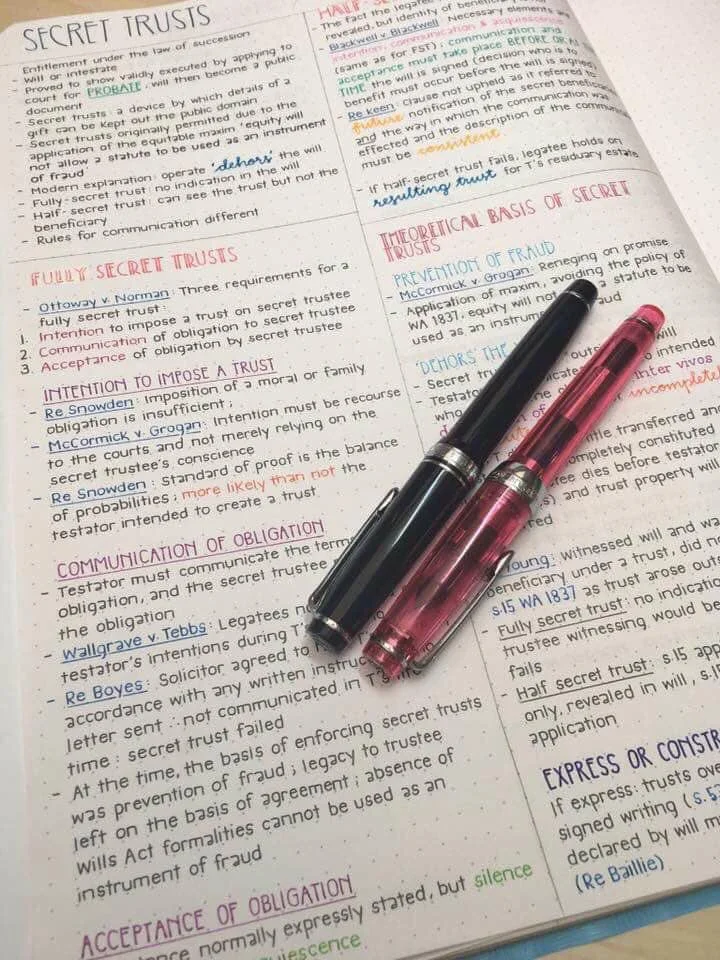 SECRET TRUSTS
- Entitlement under the law of succession
- Will or intestate
- Proved to show validly executed by applying to
court for PROBATE, will then become a public
document
- Secret trusts : a device by which details of a
gift can be kept out the public domain
- Secret trusts originally permitted due to the
application of the equitable maxim 'equity will
not allow a statute to be used as an instrument
of fraud'
- Modern explanation: operate 'dehors' the will
- Fully-secret trust : no indication in the will
- Half-secret trust: can see the trust but not the
beneficiary
- Rules for communication different
FULLY SECRET TRUSTS
- Ottoway v. Norman: Three requirements for a
fully secret trust:
1. Intention to impose a trust on secret trustee
2. Communication of obligation to secret trustee
3. Acceptance of obligation by secret trustee
INTENTION TO IMPOSE A TRUST
- Re Snowden: Imposition of a moral or family
obligation is insufficient ;
- McCormick v. Grogan: Intention must be recourse
to the courts, and not merely relying on the
secret trustee's conscience
- Re Snowden: Standard of proof is the balance
of probabilities ; more likely than not the
testator intended to create a trust
COMMUNICATION OF OBLIGATION
- Testator must communicate the
obligation, and the secret trustee
the obligation
- Wallgrave v. Tebbs: Legatees
testator's intentions during
- Re Boyes: Solicitor agreed to
accordance with any written
letter sent ∴ not communicated in T's
time : secret trust failed
- At the time, the basis of enforcing secret trusts
was prevention of fraud ; legacy to trustee
left on the basis of agreement ; absence of
Wills Act formalities cannot be used as an
instrument of fraud
ACCEPTANCE OF OBLIGATION
normally expressly stated, but silence
- The fact the
revealed, but identity of
- Blackwell v. Blackwell: Necessary elements are
intention, communication & acquiescence
(same as for FST) ; communication, and
acceptance must take place BEFORE OR AT
TIME the will is signed (decision who is to
benefit must occur before the will is signed)
- Re Keen: clause not upheld as it referred to
future notification of the secret
and the way in which the communication was
effected and the description of the
must be consistent
- If half-secret trust fails, legatee holds on
resulting trust for T's residuary estate
THEORETICAL BASIS OF SECRET
TRUSTS
PREVENTION OF FRAUD
- McCormick v. Grogan: Reneging on promise
- Application of maxim, avoiding the policy of
WA 1837, equity will not a statute to be
used as an
'DEHORS'
- Secret will
- intended
who inter vivos
of incomplete
title transferred
completely constituted
dies before testator
and trust property will
Young: witnessed will and
beneficiary under a trust, did
s.15 WA 1837 as trust arose
- Fully secret trust: no
trustee witnessing would be
fails
- Half secret trust: s.15
only, revealed in will,
application
EXPRESS OR
If express: trusts
signed writing
declared by will
(Re Baillie)